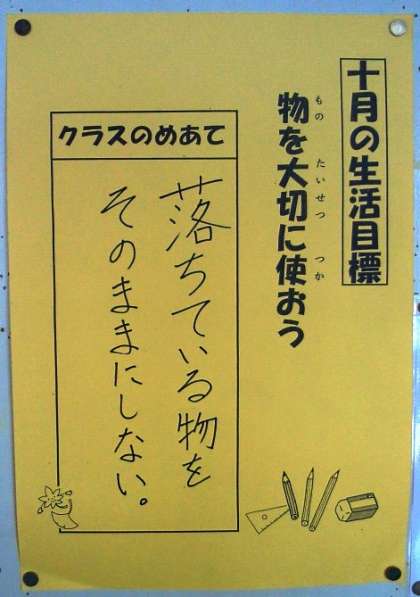 十月の生活目標
物を大切に使おう
もの たいせつ つか
クラスのめあて
落ちている物を
そのままにしない。